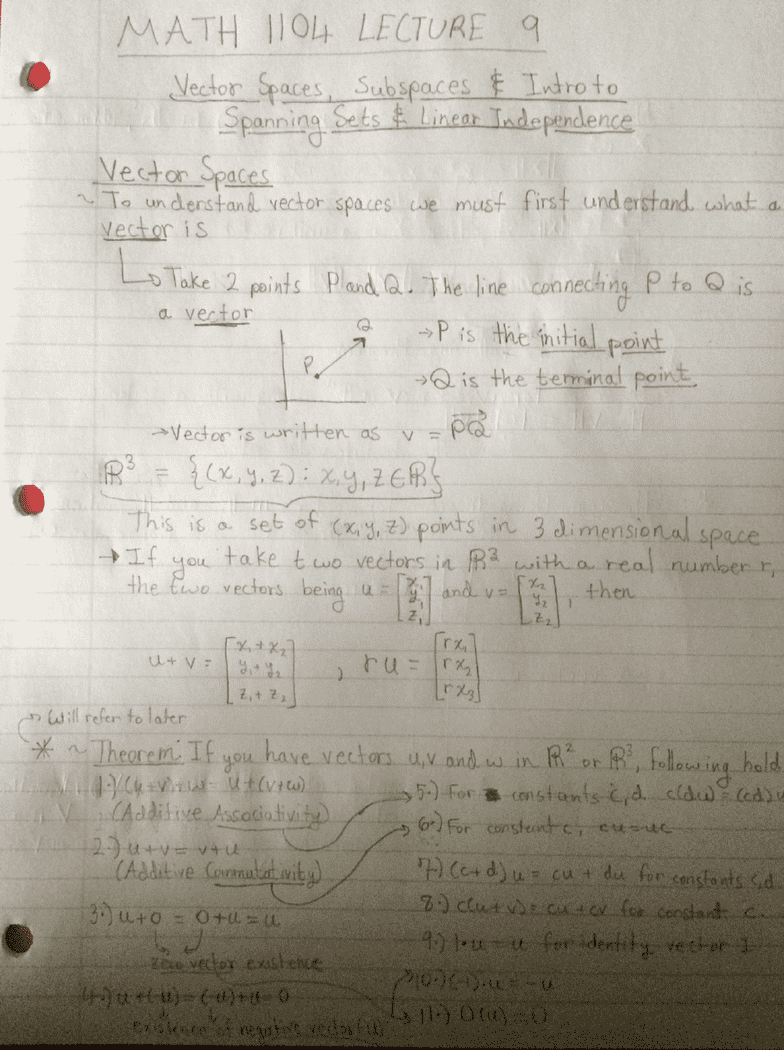 MATH 1104 LECTURE 9
Vector Spaces, Subspaces & Intro to
Spanning Sets & Linear Independence
Vector Spaces
~ To understand vector spaces we must first understand what a
vector is
↳ Take 2 points P and Q. The line connecting P to Q is
a vector
Q
P
→P is the initial point
→Q is the terminal point
→Vector is written as v = PQ⃗
ℝ³ = {(x, y, z) : x, y, z ∈ ℝ}
This is a set of (x, y, z) points in 3 dimensional space
→ If you take two vectors in ℝ³ with a real number r,
the two vectors being u = [x₁ y₁ z₁] and v = [x₂ y₂ z₂], then
u + v = [x₁ + x₂ y₁ + y₂ z₁ + z₂] , ru = [rx₁ rx₂ rx₃]
→ Will refer to later
* ~ Theorem: If you have vectors u, v and w in ℝ² or ℝ³, following hold
1.) (u+v)+w = u+(v+w)
(Additive Associativity)
2.) u+v = v+u
(Additive Commutativity)
3.) u+0 = 0+u = u
zero vector existence
4.) u+(-u) = (-u)+u = 0
existence of negative vector (u)
5.) For constants c,d c(du) = (cd)u
6.) For constant c, cu=uc
7.) (c+d)u = cu + du for constants c,d
8.) c(u+v) = cu+cv for constant c.
9.) 1·u = u for identity vector 1
10.) (-1)·u = -u
11.) 0(u) = 0